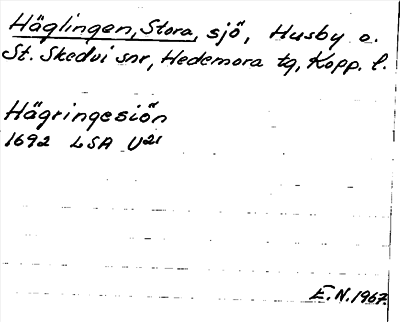 Häglingen, Stora, sjö, Husby o.
St. Skedvi snr, Hedemora tg, Kopp. l.
Hägringesiön
1692 LSA U21
E.N. 1967.